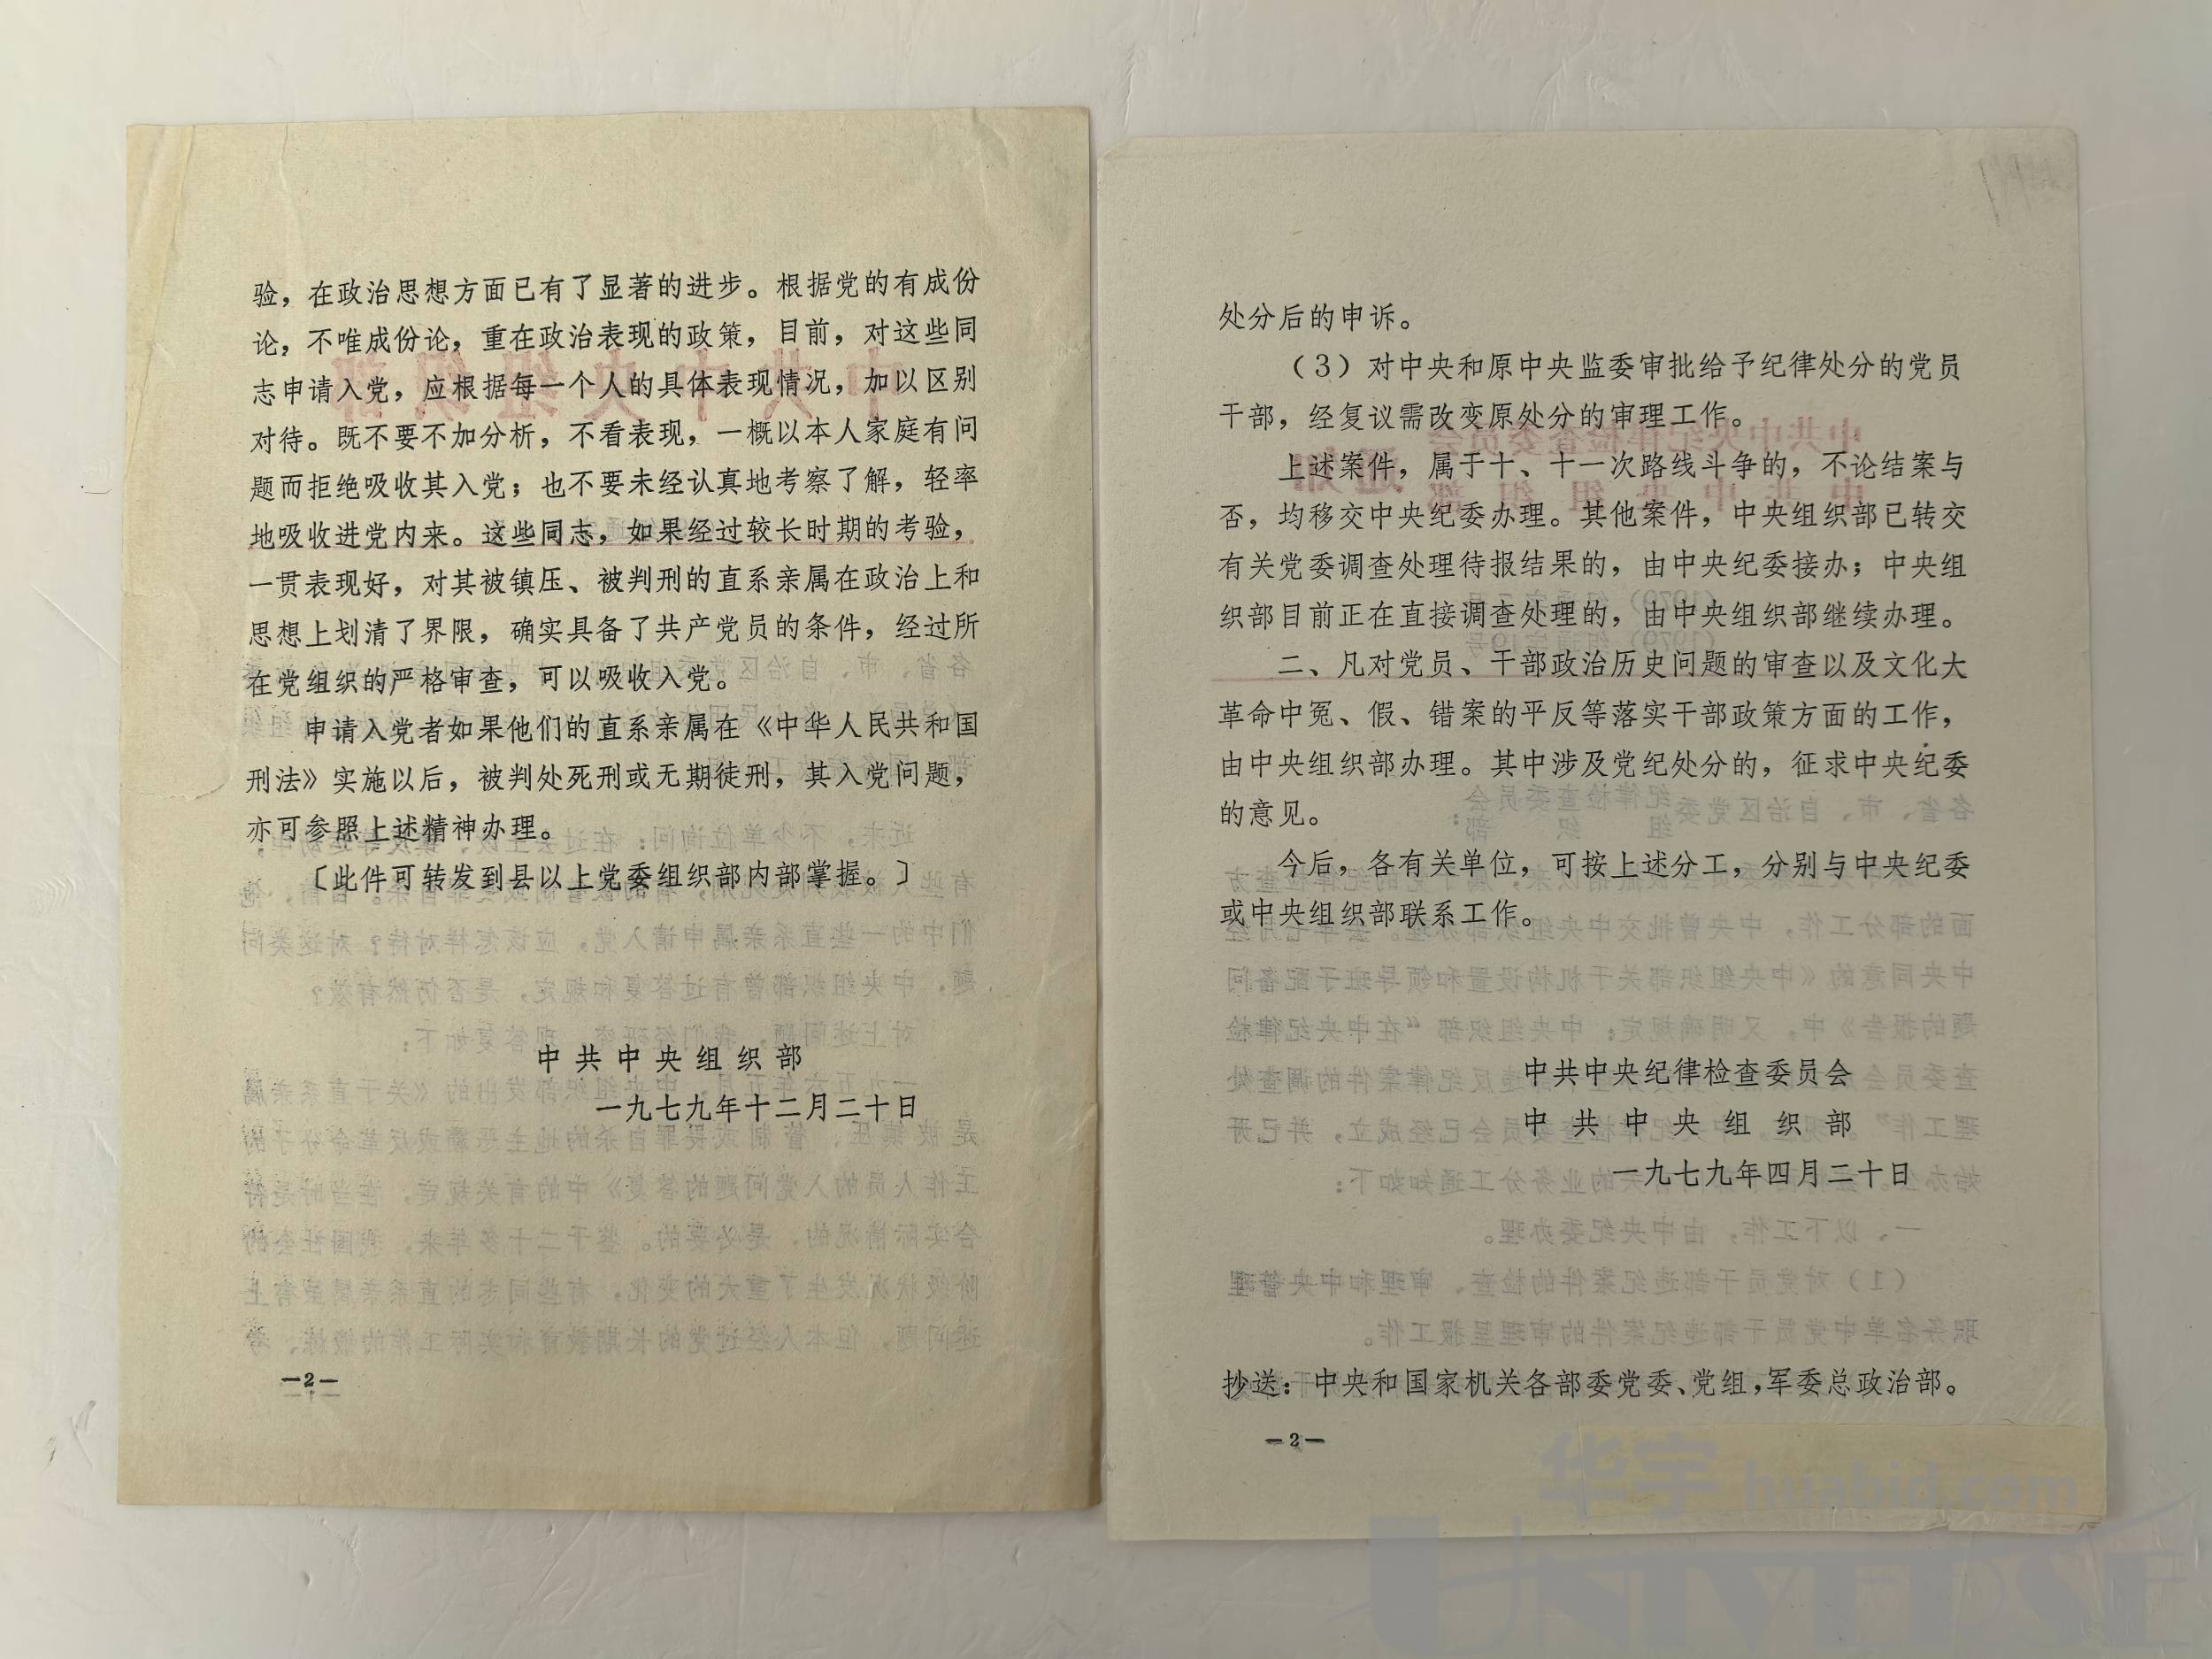 验，在政治思想方面已有了显著的进步。根据党的有成份
论，不唯成份论，重在政治表现的政策，目前，对这些同
志申请入党，应根据每一个人的具体表现情况，加以区别
对待。既不要不加分析，不看表现，一概以本人家庭有问
题而拒绝吸收其入党；也不要未经认真地考察了解，轻率
地吸收进党内来。这些同志，如果经过较长时期的考验，
一贯表现好，对其被镇压、被判刑的直系亲属在政治上和
思想上划清了界限，确实具备了共产党员的条件，经过所
在党组织的严格审查，可以吸收入党。
申请入党者如果他们的直系亲属在《中华人民共和国
刑法》实施以后，被判处死刑或无期徒刑，其入党问题，
亦可参照上述精神办理。
〔此件可转发到县以上党委组织部内部掌握。〕
中共中央组织部
一九七九年十二月二十日
—2—
处分后的申诉。
（3）对中央和原中央监委审批给予纪律处分的党员
干部，经复议需改变原处分的审理工作。
上述案件，属于十、十一次路线斗争的，不论结案与
否，均移交中央纪委办理。其他案件，中央组织部已转交
有关党委调查处理待报结果的，由中央纪委接办；中央组
织部目前正在直接调查处理的，由中央组织部继续办理。
二、凡对党员、干部政治历史问题的审查以及文化大
革命中冤、假、错案的平反等落实干部政策方面的工作，
由中央组织部办理。其中涉及党纪处分的，征求中央纪委
的意见。
今后，各有关单位，可按上述分工，分别与中央纪委
或中央组织部联系工作。
中共中央纪律检查委员会
中共中央组织部
一九七九年四月二十日
抄送：中央和国家机关各部委党委、党组，军委总政治部。
—2—
华宇 huabid.com
UNIVERSE